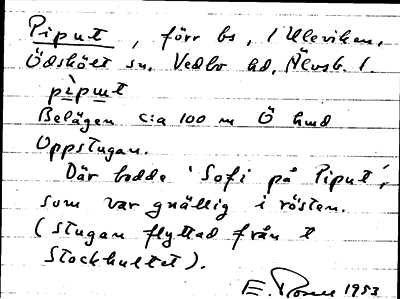 Piput, förr bs, i Ulleviken,
Ödskölt sn, Vedbo hd, Älvsb. l.
pìput
Belägen c:a 100 m Ö hmd
Uppstugan.
Där bodde 'Sofi på Piput',
som var gnällig i rösten.
(Stugan flyttad från t
Stockhultet).
E. 1953